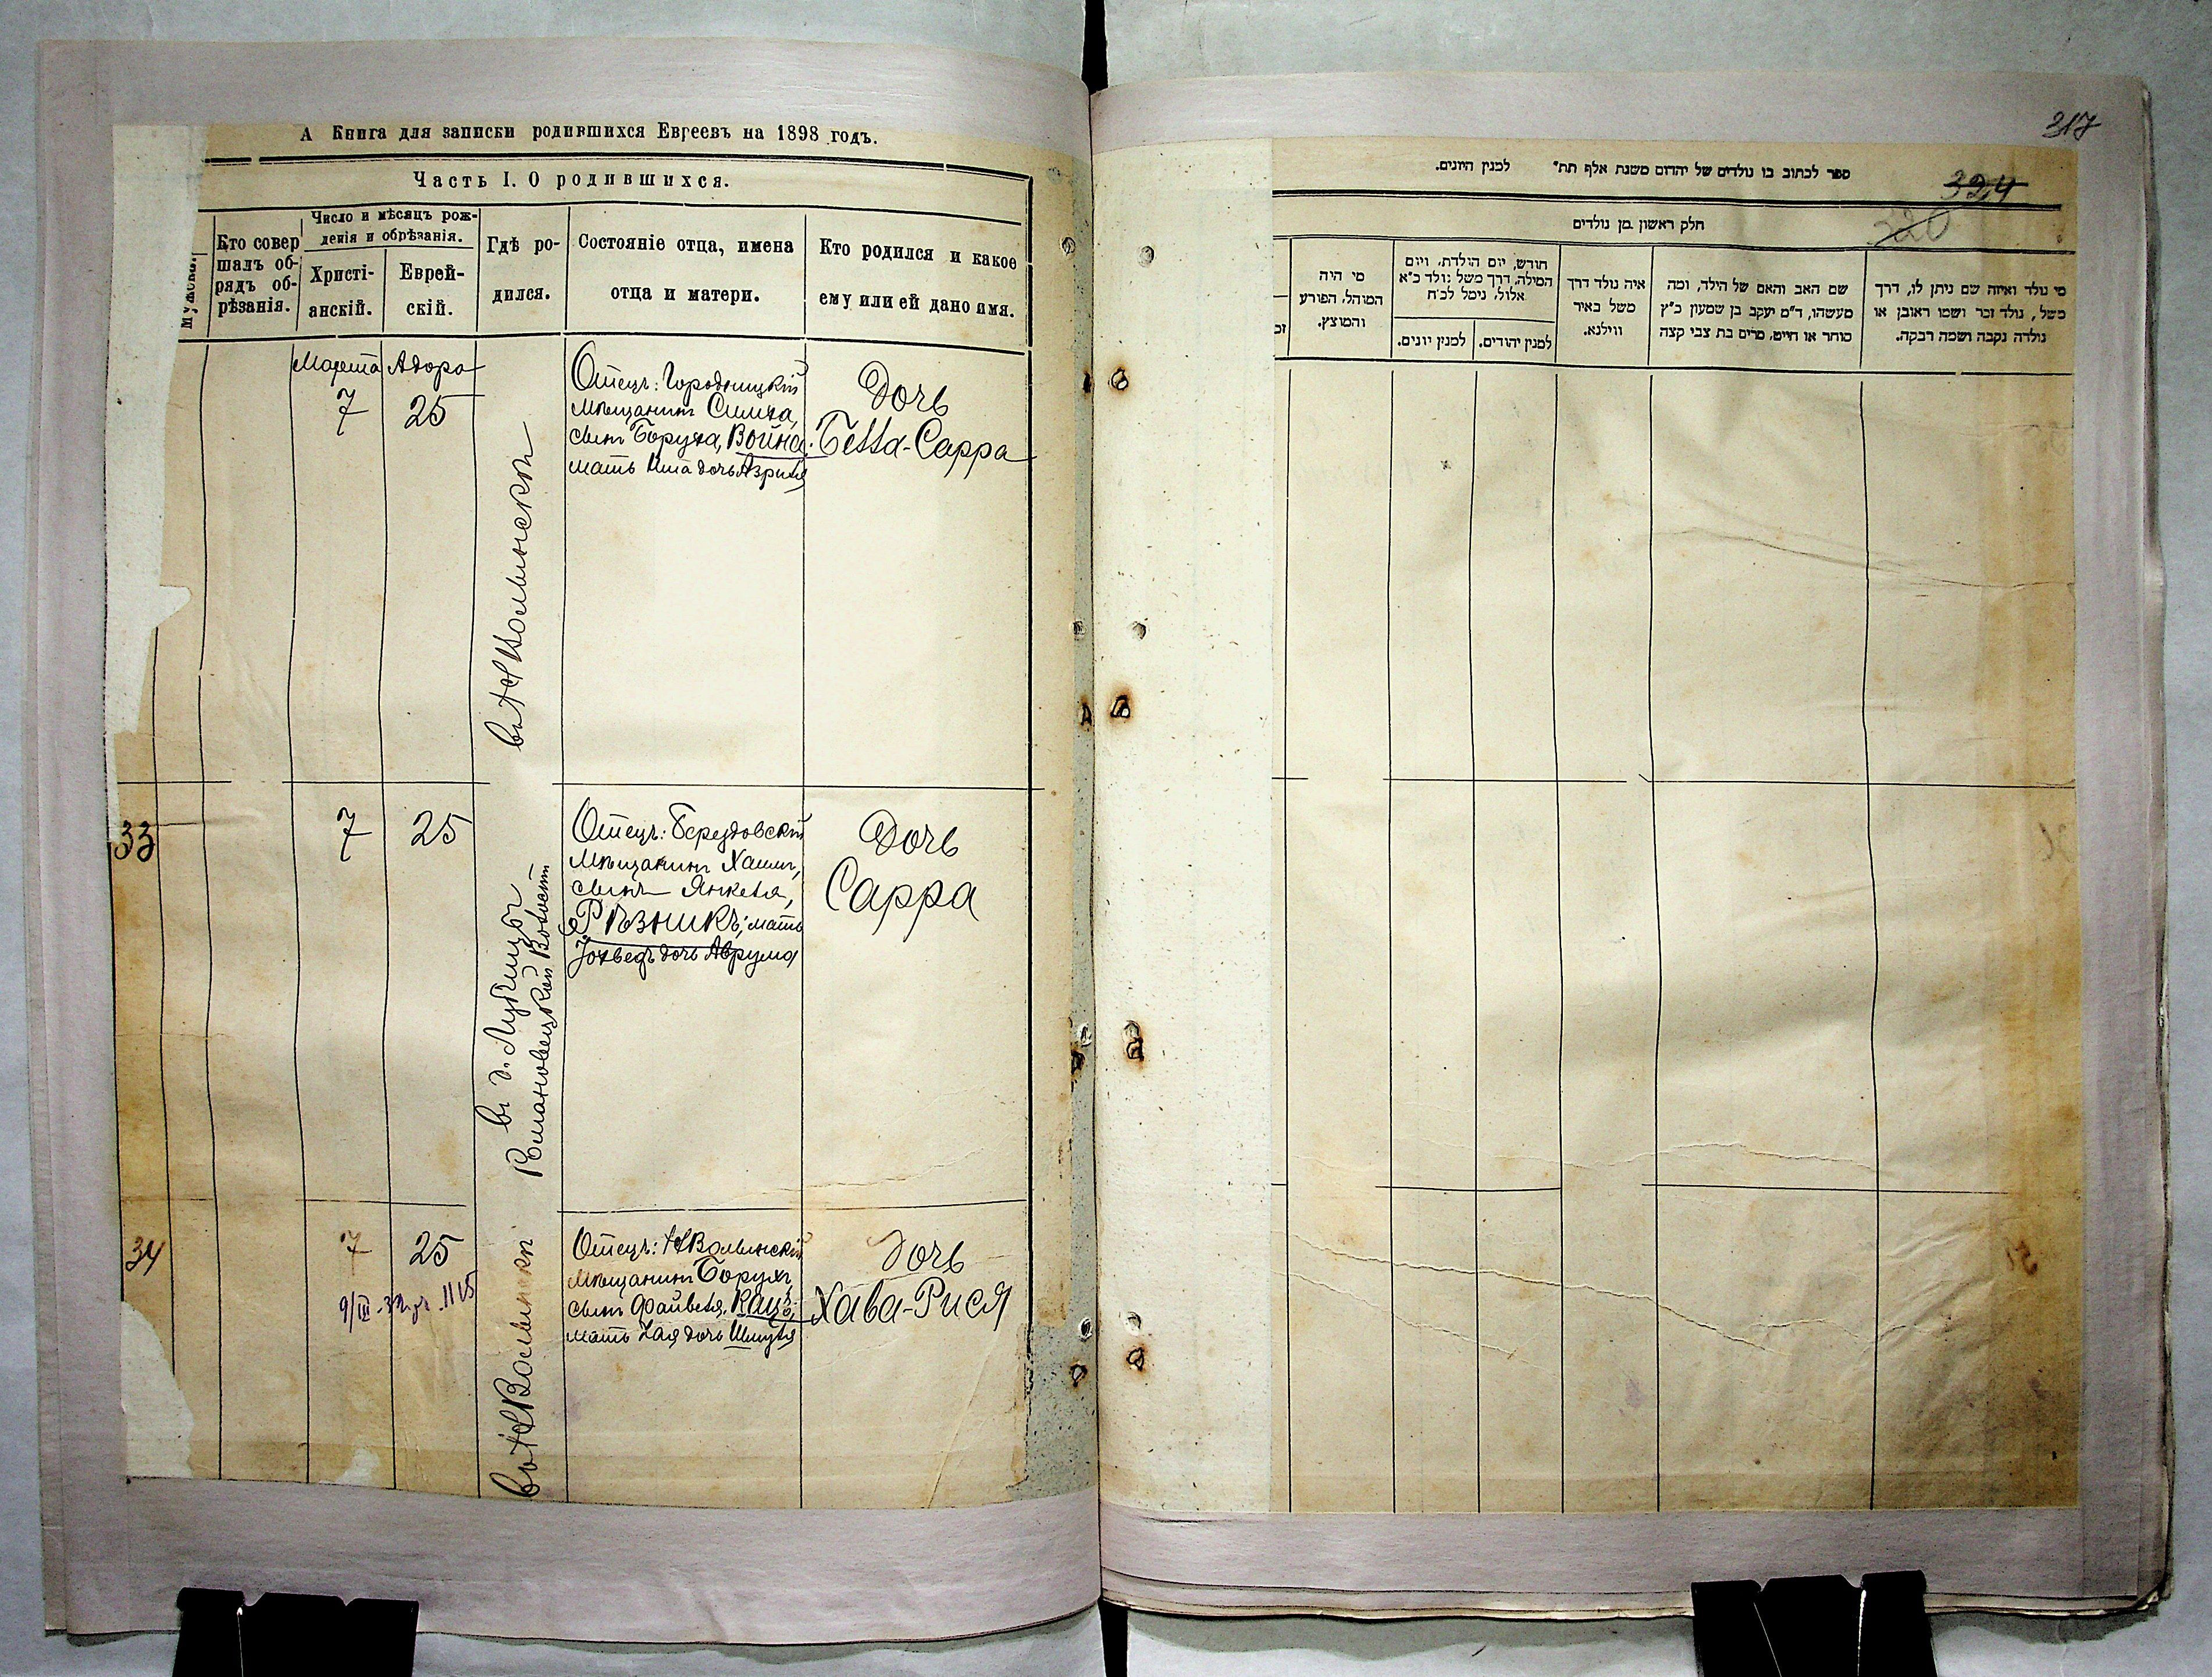 А Книга для записки родившихся Евреевъ на 1898 годъ.
Часть I. О родившихся.
Кто совер
шалъ об-
рядъ об-
рѣзанія.
Число и мѣсяцъ рож-
денія и обрѣзанія.
Христі-
анскій.
Еврей-
скій.
Гдѣ ро-
дился.
Состояніе отца, имена
отца и матери.
Кто родился и какое
ему или ей дано имя.
Марта
7
Адара
25
въ НВолынскѣ
Отецъ: Городницкій
мѣщанинъ Симха,
сынъ Боруха, Война;
мать Ита дочь Азриля
Дочь
Бейла-Сарра
33
7
25
въ д. Лубчицы
Романовецкой Волости
Отецъ: Берездовскій
Мѣщанинъ Хаимъ,
сынъ Янкеля,
Рѣзникъ; мать
Іохведъ дочь Аврума
Дочь
Сарра
34
7
25
въ НВолынскѣ
Отецъ: НВолынскій
Мѣщанинъ Борухъ
сынъ Файвеля, Кацъ;
мать Хая дочь Шмуля
Дочь
Хава-Рися
317
324
320
ספר לכתוב בו נולדים של יהדום משנת אלף תת״ למנין היונים.
חלק ראשון מן נולדים
מי נולד ואיזה שם ניתן לו, דרך
משל, נולד זכר ושמו ראובן או
נולדה נקבה ושמה רבקה.
שם האב והאם של הילד, ומה
מעשהו, ד״מ יעקב בן שמעון כ״ץ
סוחר או חייט, מרים בת צבי קצה
איה נולד דרך
משל באיר
ווילנא.
חודש, יום הולדת, ויום
המילה, דרך משל נולד כ״א
אלול, נימל לכ״ח
למנין יהודים.
למנין יונים.
מי היה
המוהל, הפורע
והמוצץ.